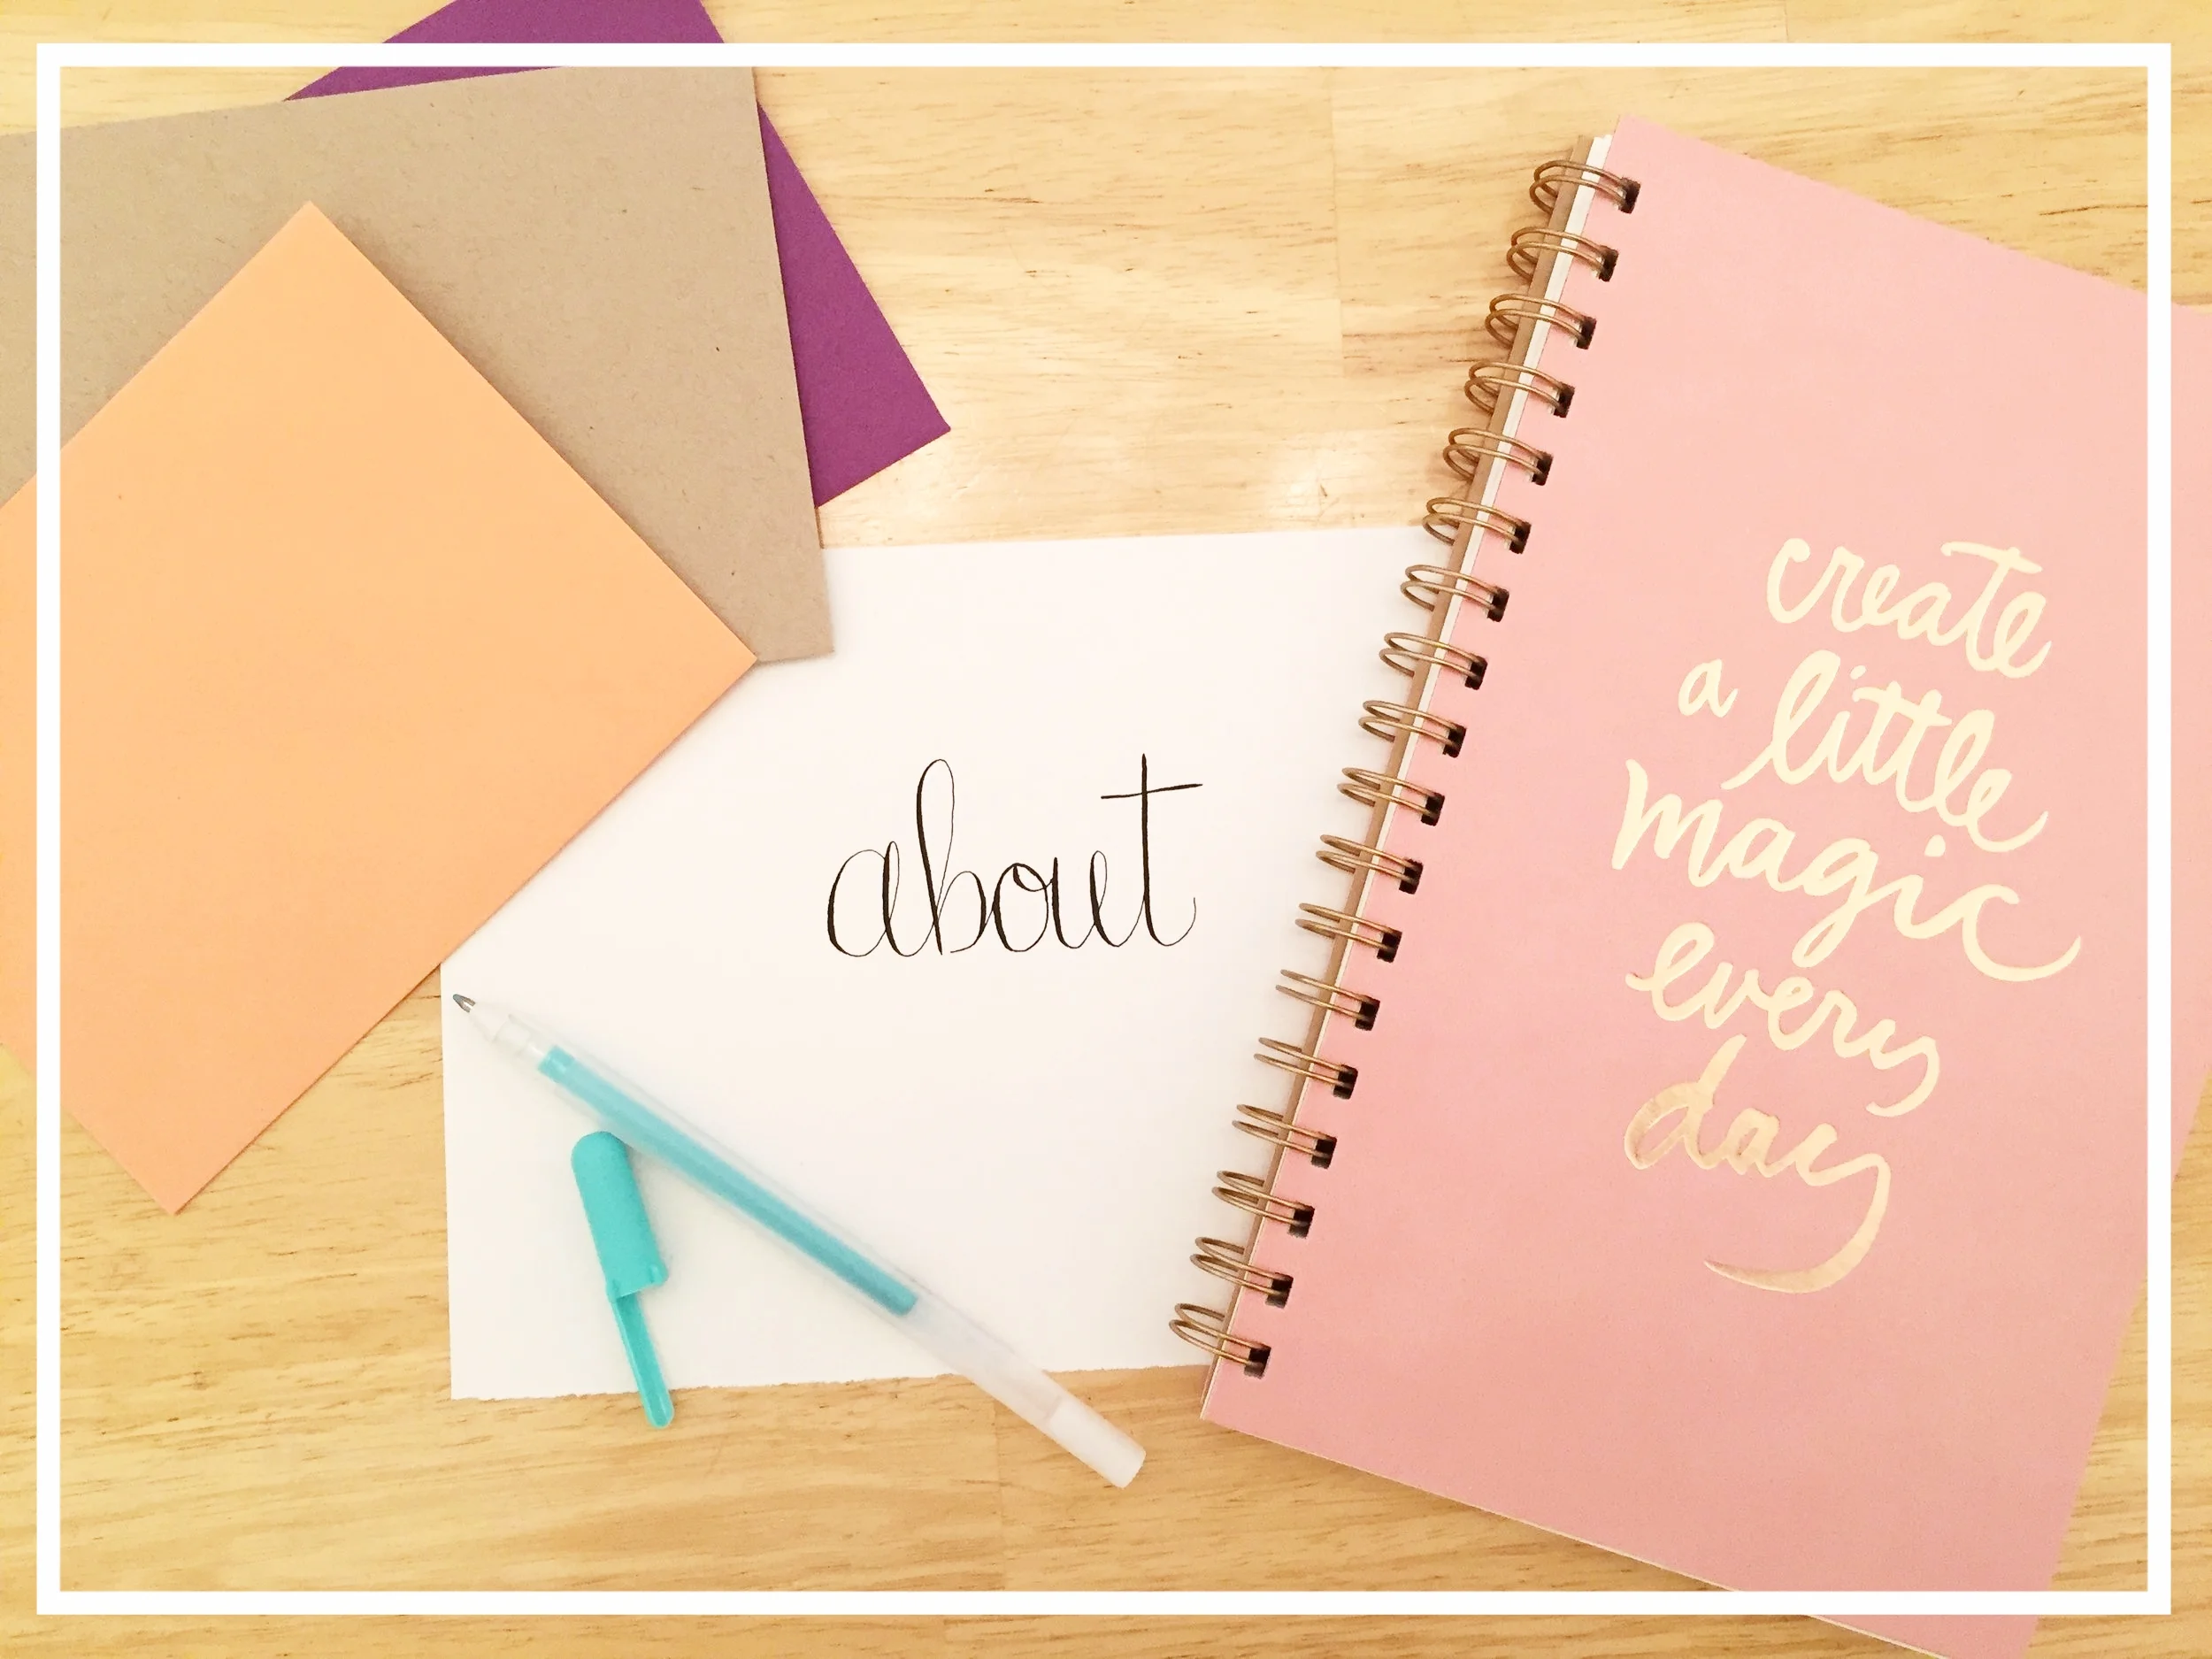 about
create
a little
magic
every
day